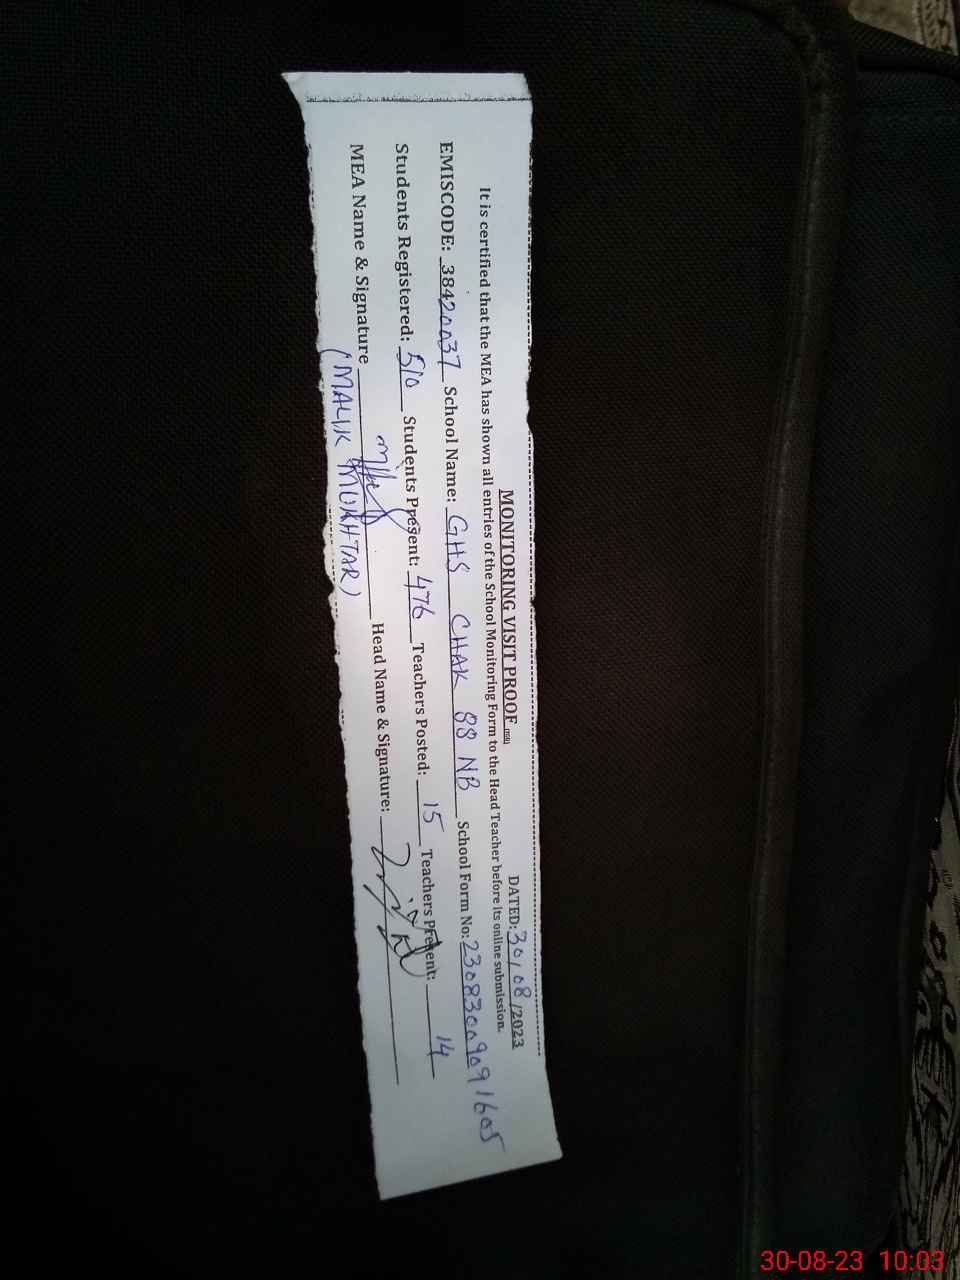 MONITORING VISIT PROOF
DATED: 30/08/2023
It is certified that the MEA has shown all entries of the School Monitoring Form to the Head Teacher before its online submission.
EMISCODE: 38420037 School Name: GHS CHAK 88 NB School Form No: 23083009091605
Students Registered: 510 Students Present: 476 Teachers Posted: 15 Teachers Present: 14
MEA Name & Signature Head Name & Signature:
(MALIK MUKHTAR)
30-08-23 10:03